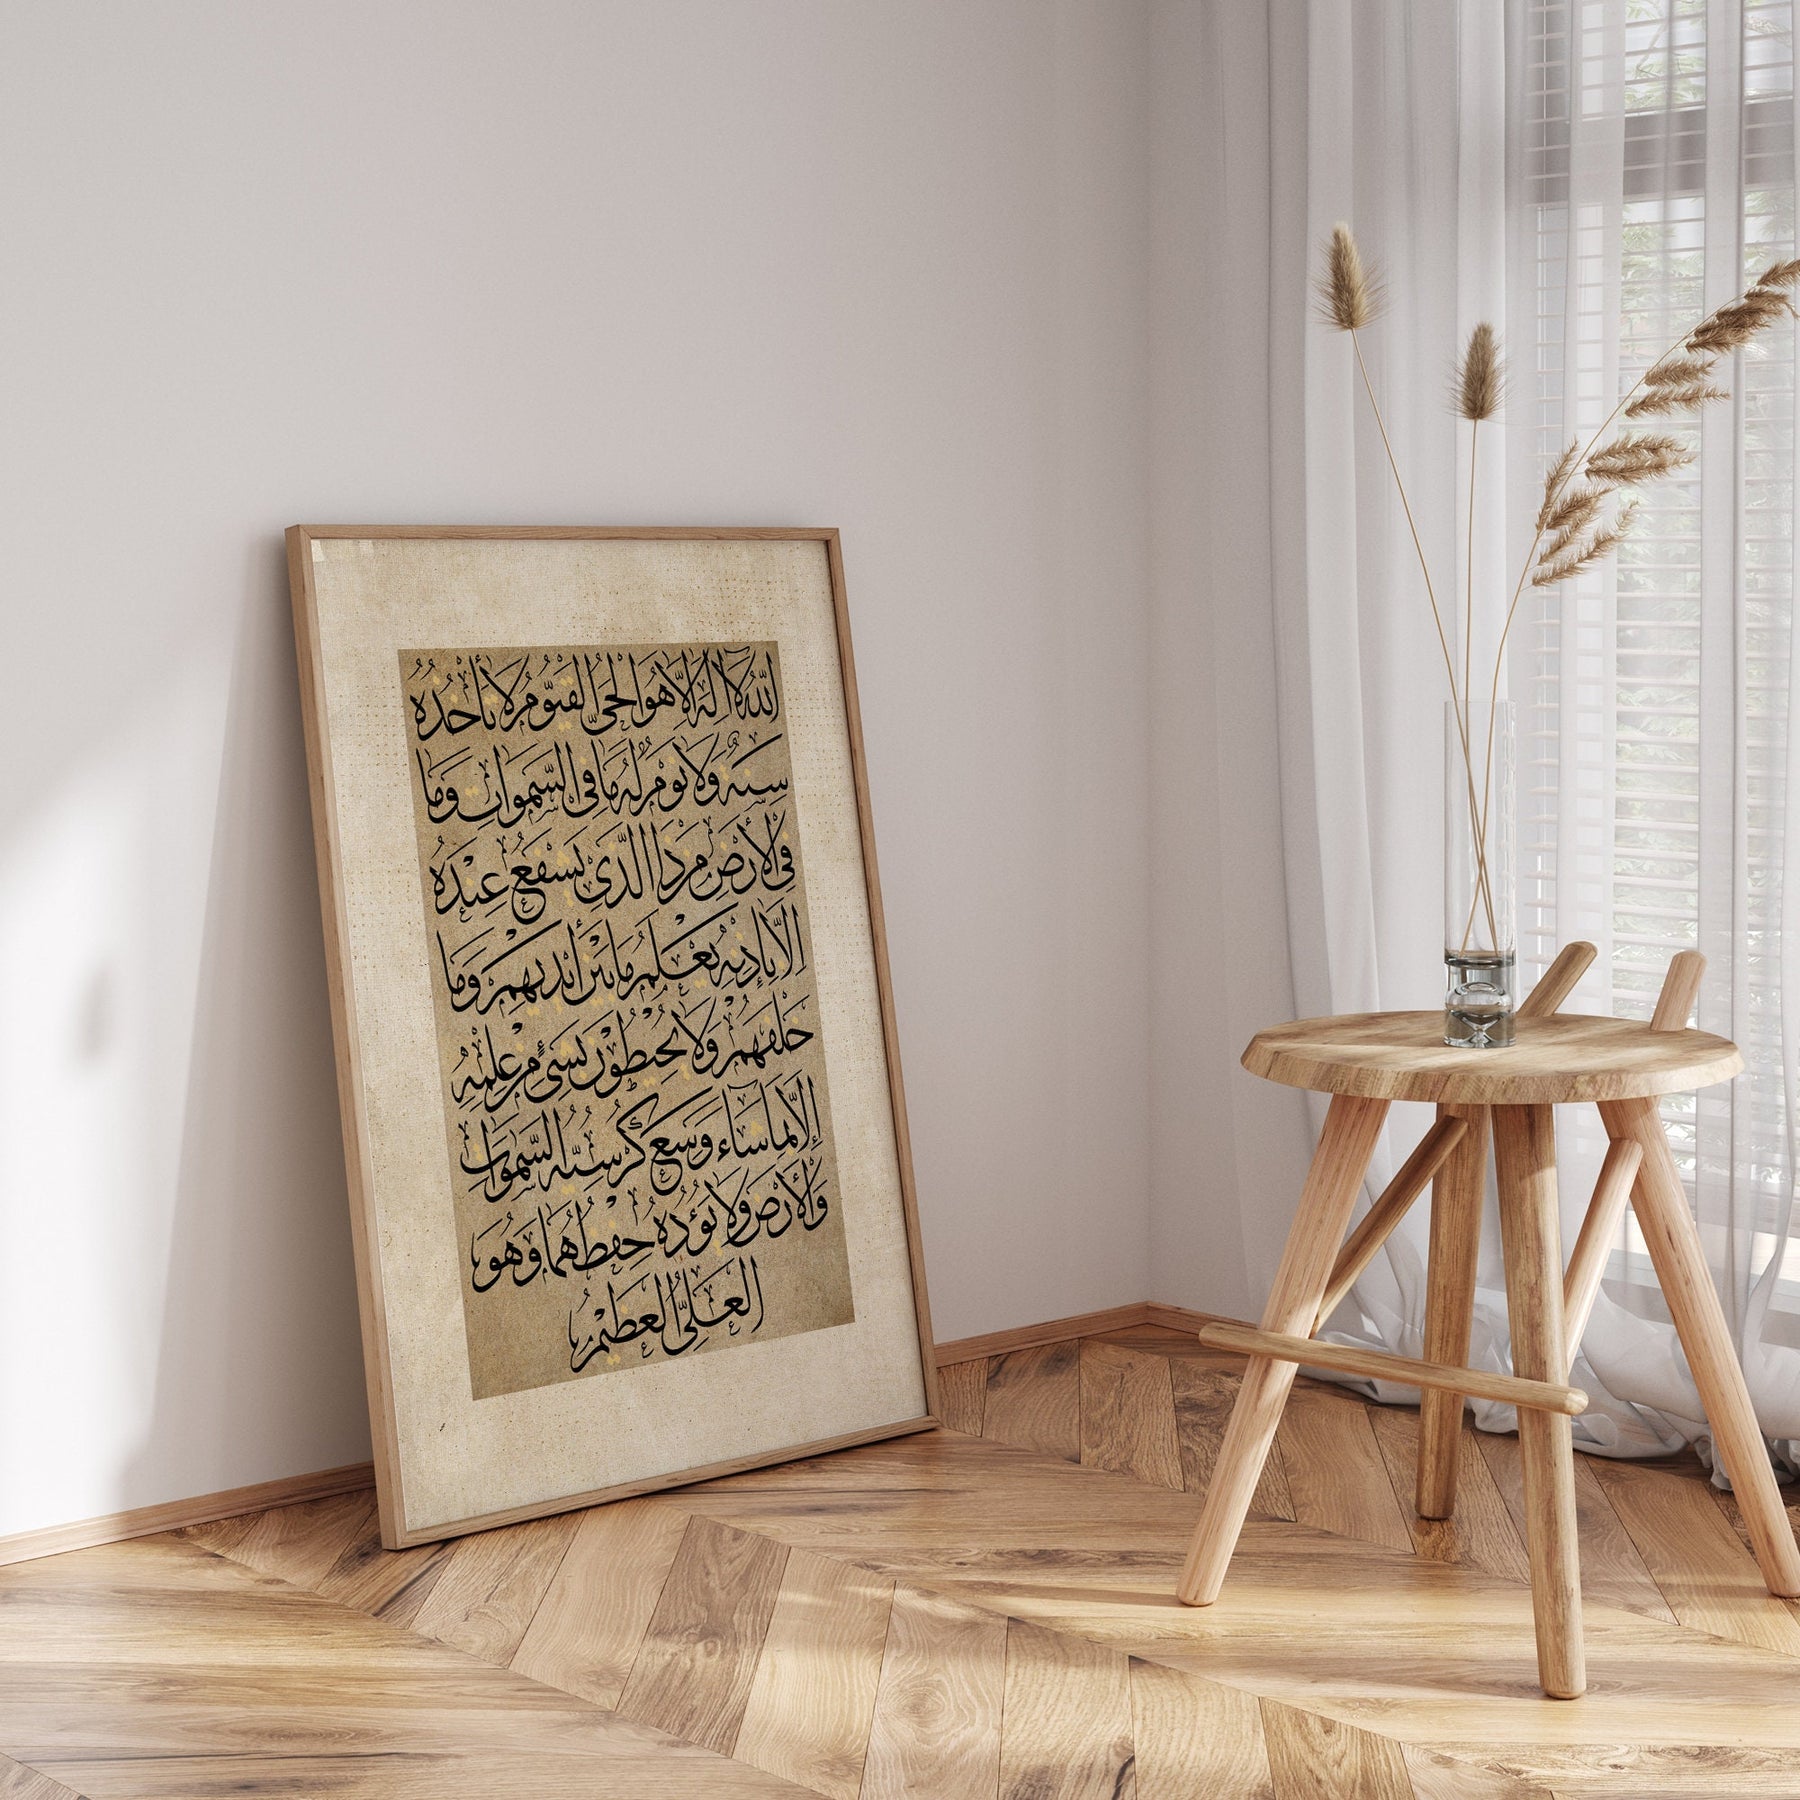 اللَّهُ لَا إِلَهَ إِلَّا هُوَ الْحَيُّ الْقَيُّومُ لَا تَأْخُذُهُ
سِنَةٌ وَلَا نَوْمٌ لَهُ مَا فِي السَّمَوَاتِ وَمَا
فِي الْأَرْضِ مَنْ ذَا الَّذِي يَشْفَعُ عِنْدَهُ
إِلَّا بِإِذْنِهِ يَعْلَمُ مَا بَيْنَ أَيْدِيهِمْ وَمَا
خَلْفَهُمْ وَلَا يُحِيطُونَ بِشَيْءٍ مِنْ عِلْمِهِ
إِلَّا بِمَا شَاءَ وَسِعَ كُرْسِيُّهُ السَّمَوَاتِ
وَالْأَرْضَ وَلَا يَؤُدُهُ حِفْظُهُمَا وَهُوَ
الْعَلِيُّ الْعَظِيمُ